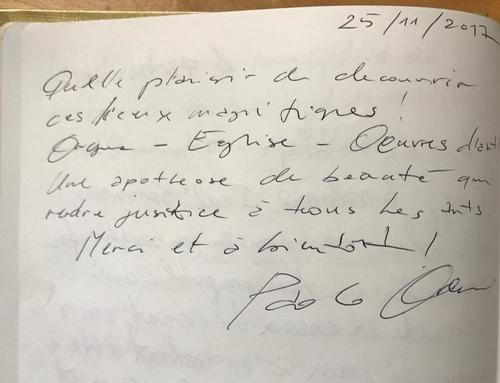 25/11/2017
Quelle plaisir de decouvrir
ces lieux magnifiques!
Orgue - Eglise - Oeuvres d'art
Une apotheose de beauté qui
rendre justice à tous les arts.
Merci et à bientôt!
Paolo